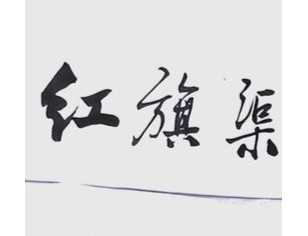 红旗渠